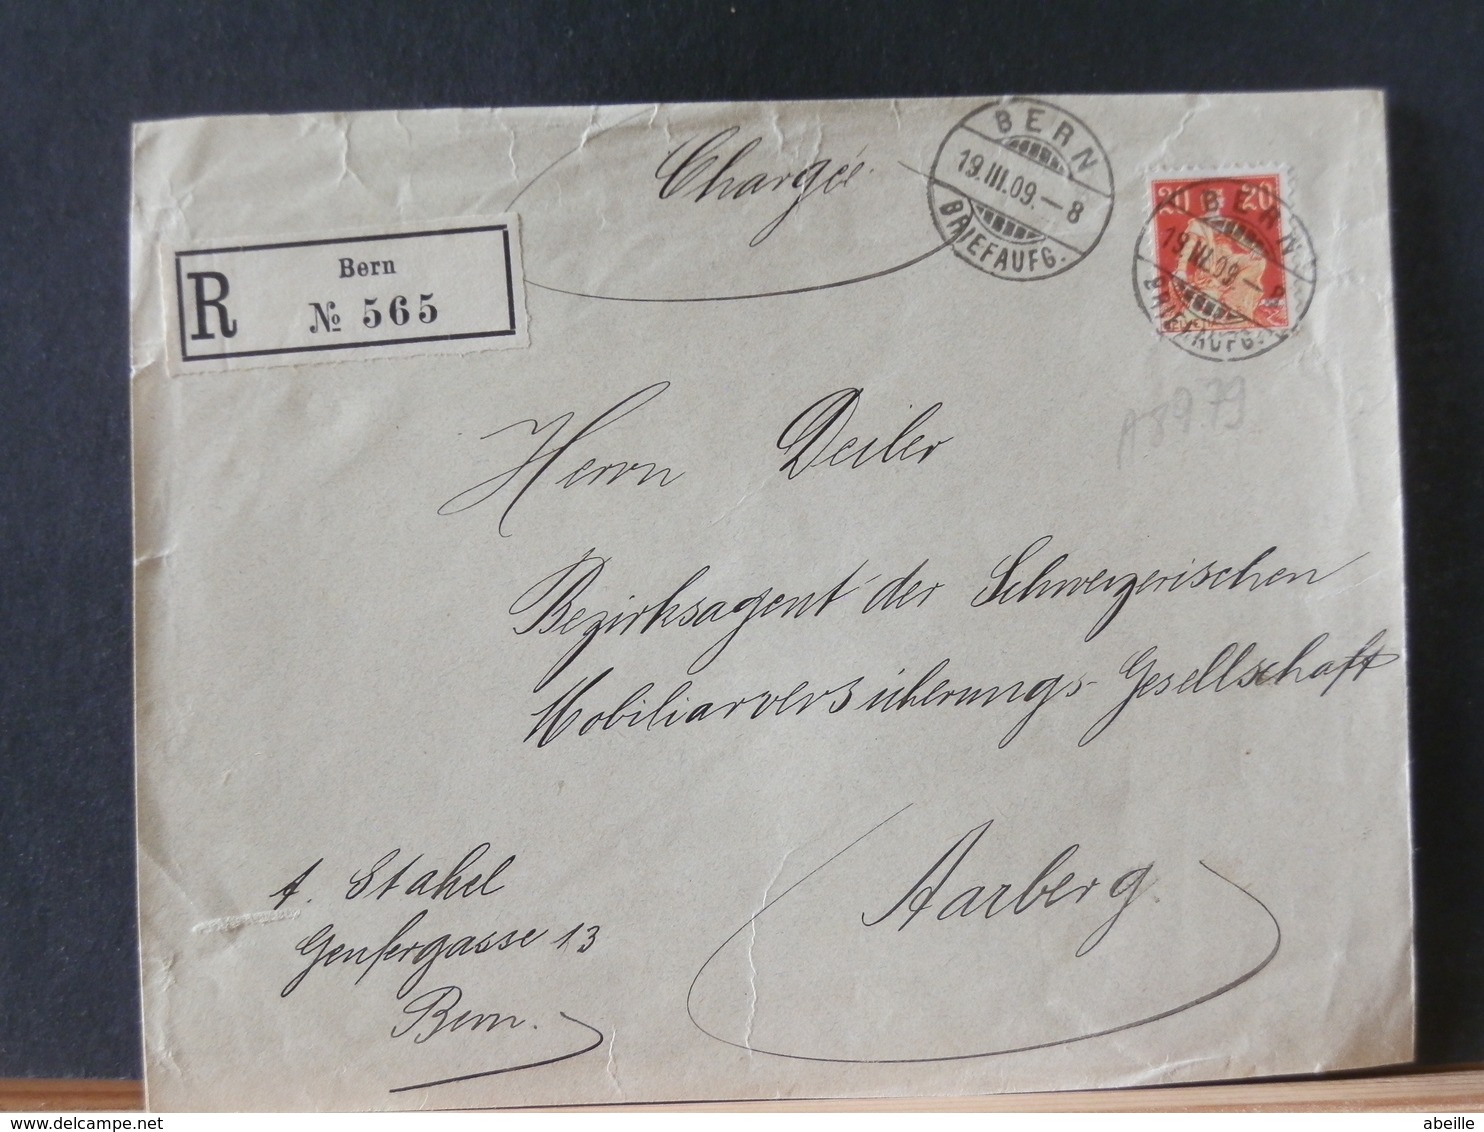 Chargée.
BERN
19.III.09.—8
BRIEFAUFG.
20 20
BERN
19.III.09.—8
BRIEFAUFG.
R Bern
№ 565
A8979
Herrn Deiler
Bezirksagent der Schweizerischen
Mobiliarversicherungs-Gesellschaft
Aarberg.
A. Stahel
Genfergasse 13
Bern.
www.delcampe.net
abeille